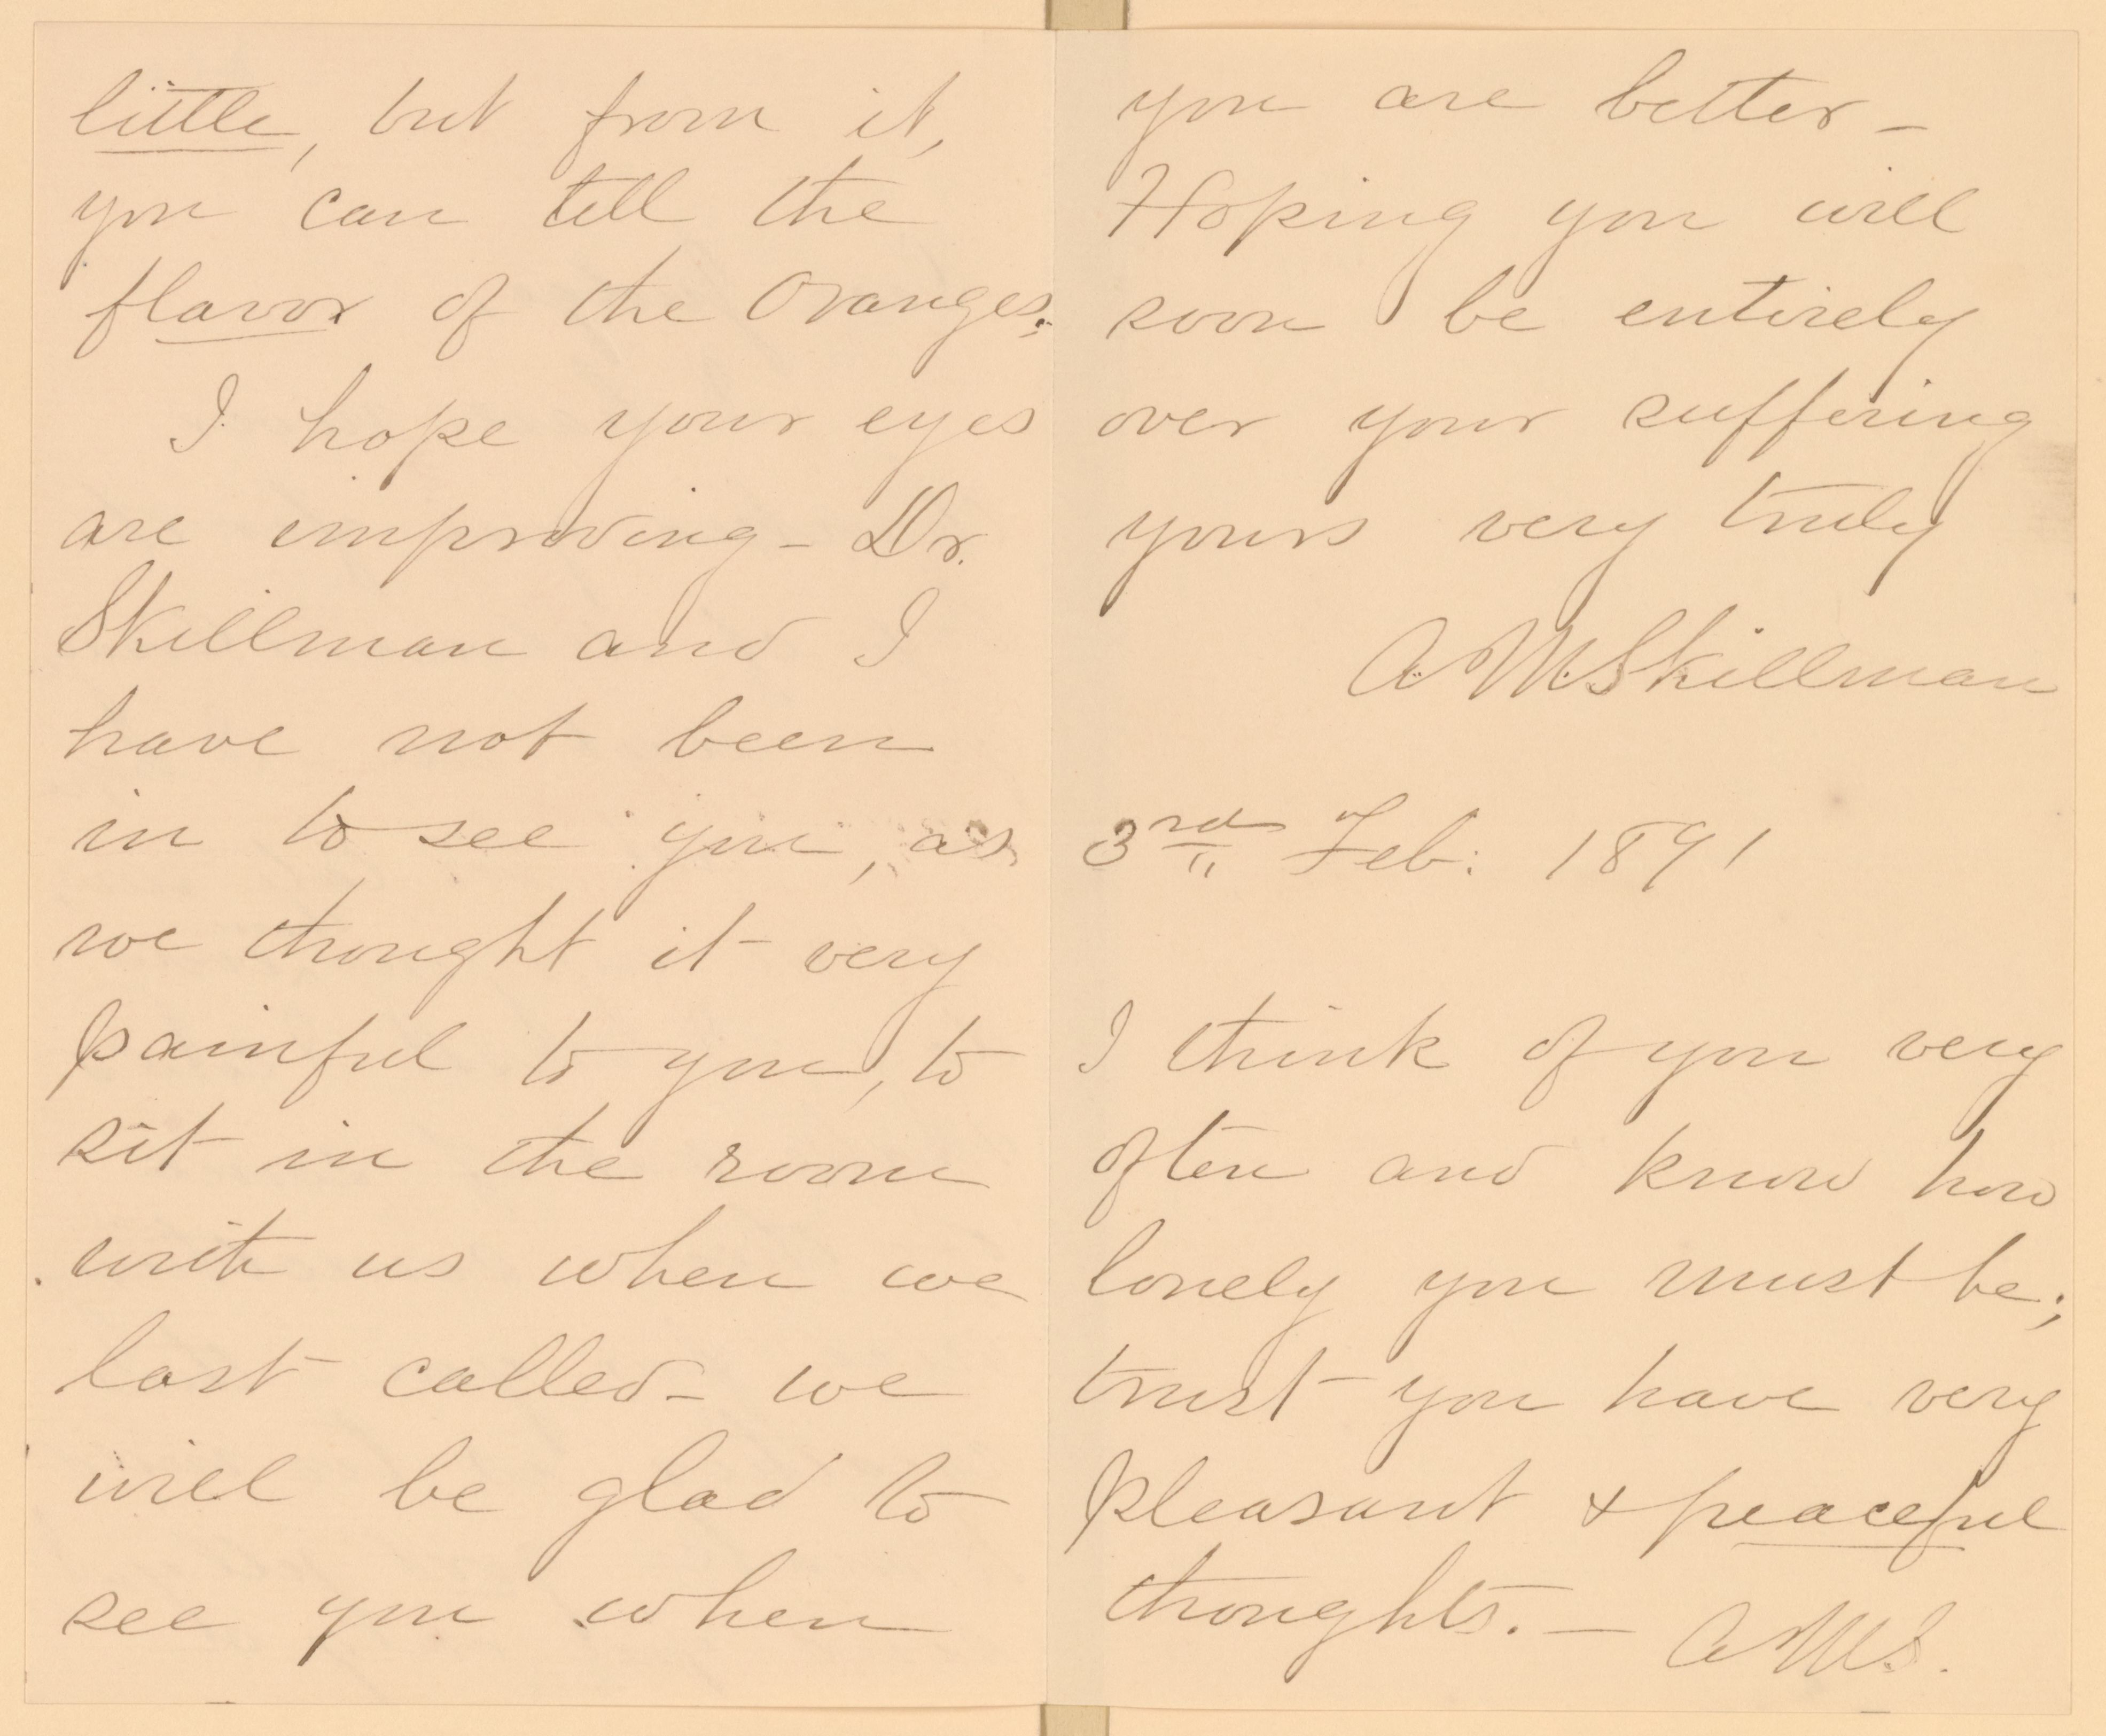 little, but from it,
you can tell the
flavor of the Oranges.
I hope your eyes
are improving - Dr.
Skillman and I
have not been
in to see you, as
we thought it very
painful to you, to
sit in the room
with us when we
last called - we
will be glad to
see you when
you are better -
Hoping you will
soon be entirely
over your suffering
yours very truly
A. M. Skillman
3rd Feb: 1891
I think of you very
often and know how
lonely you must be;
trust you have very
pleasant & peaceful
thoughts. — A M S.